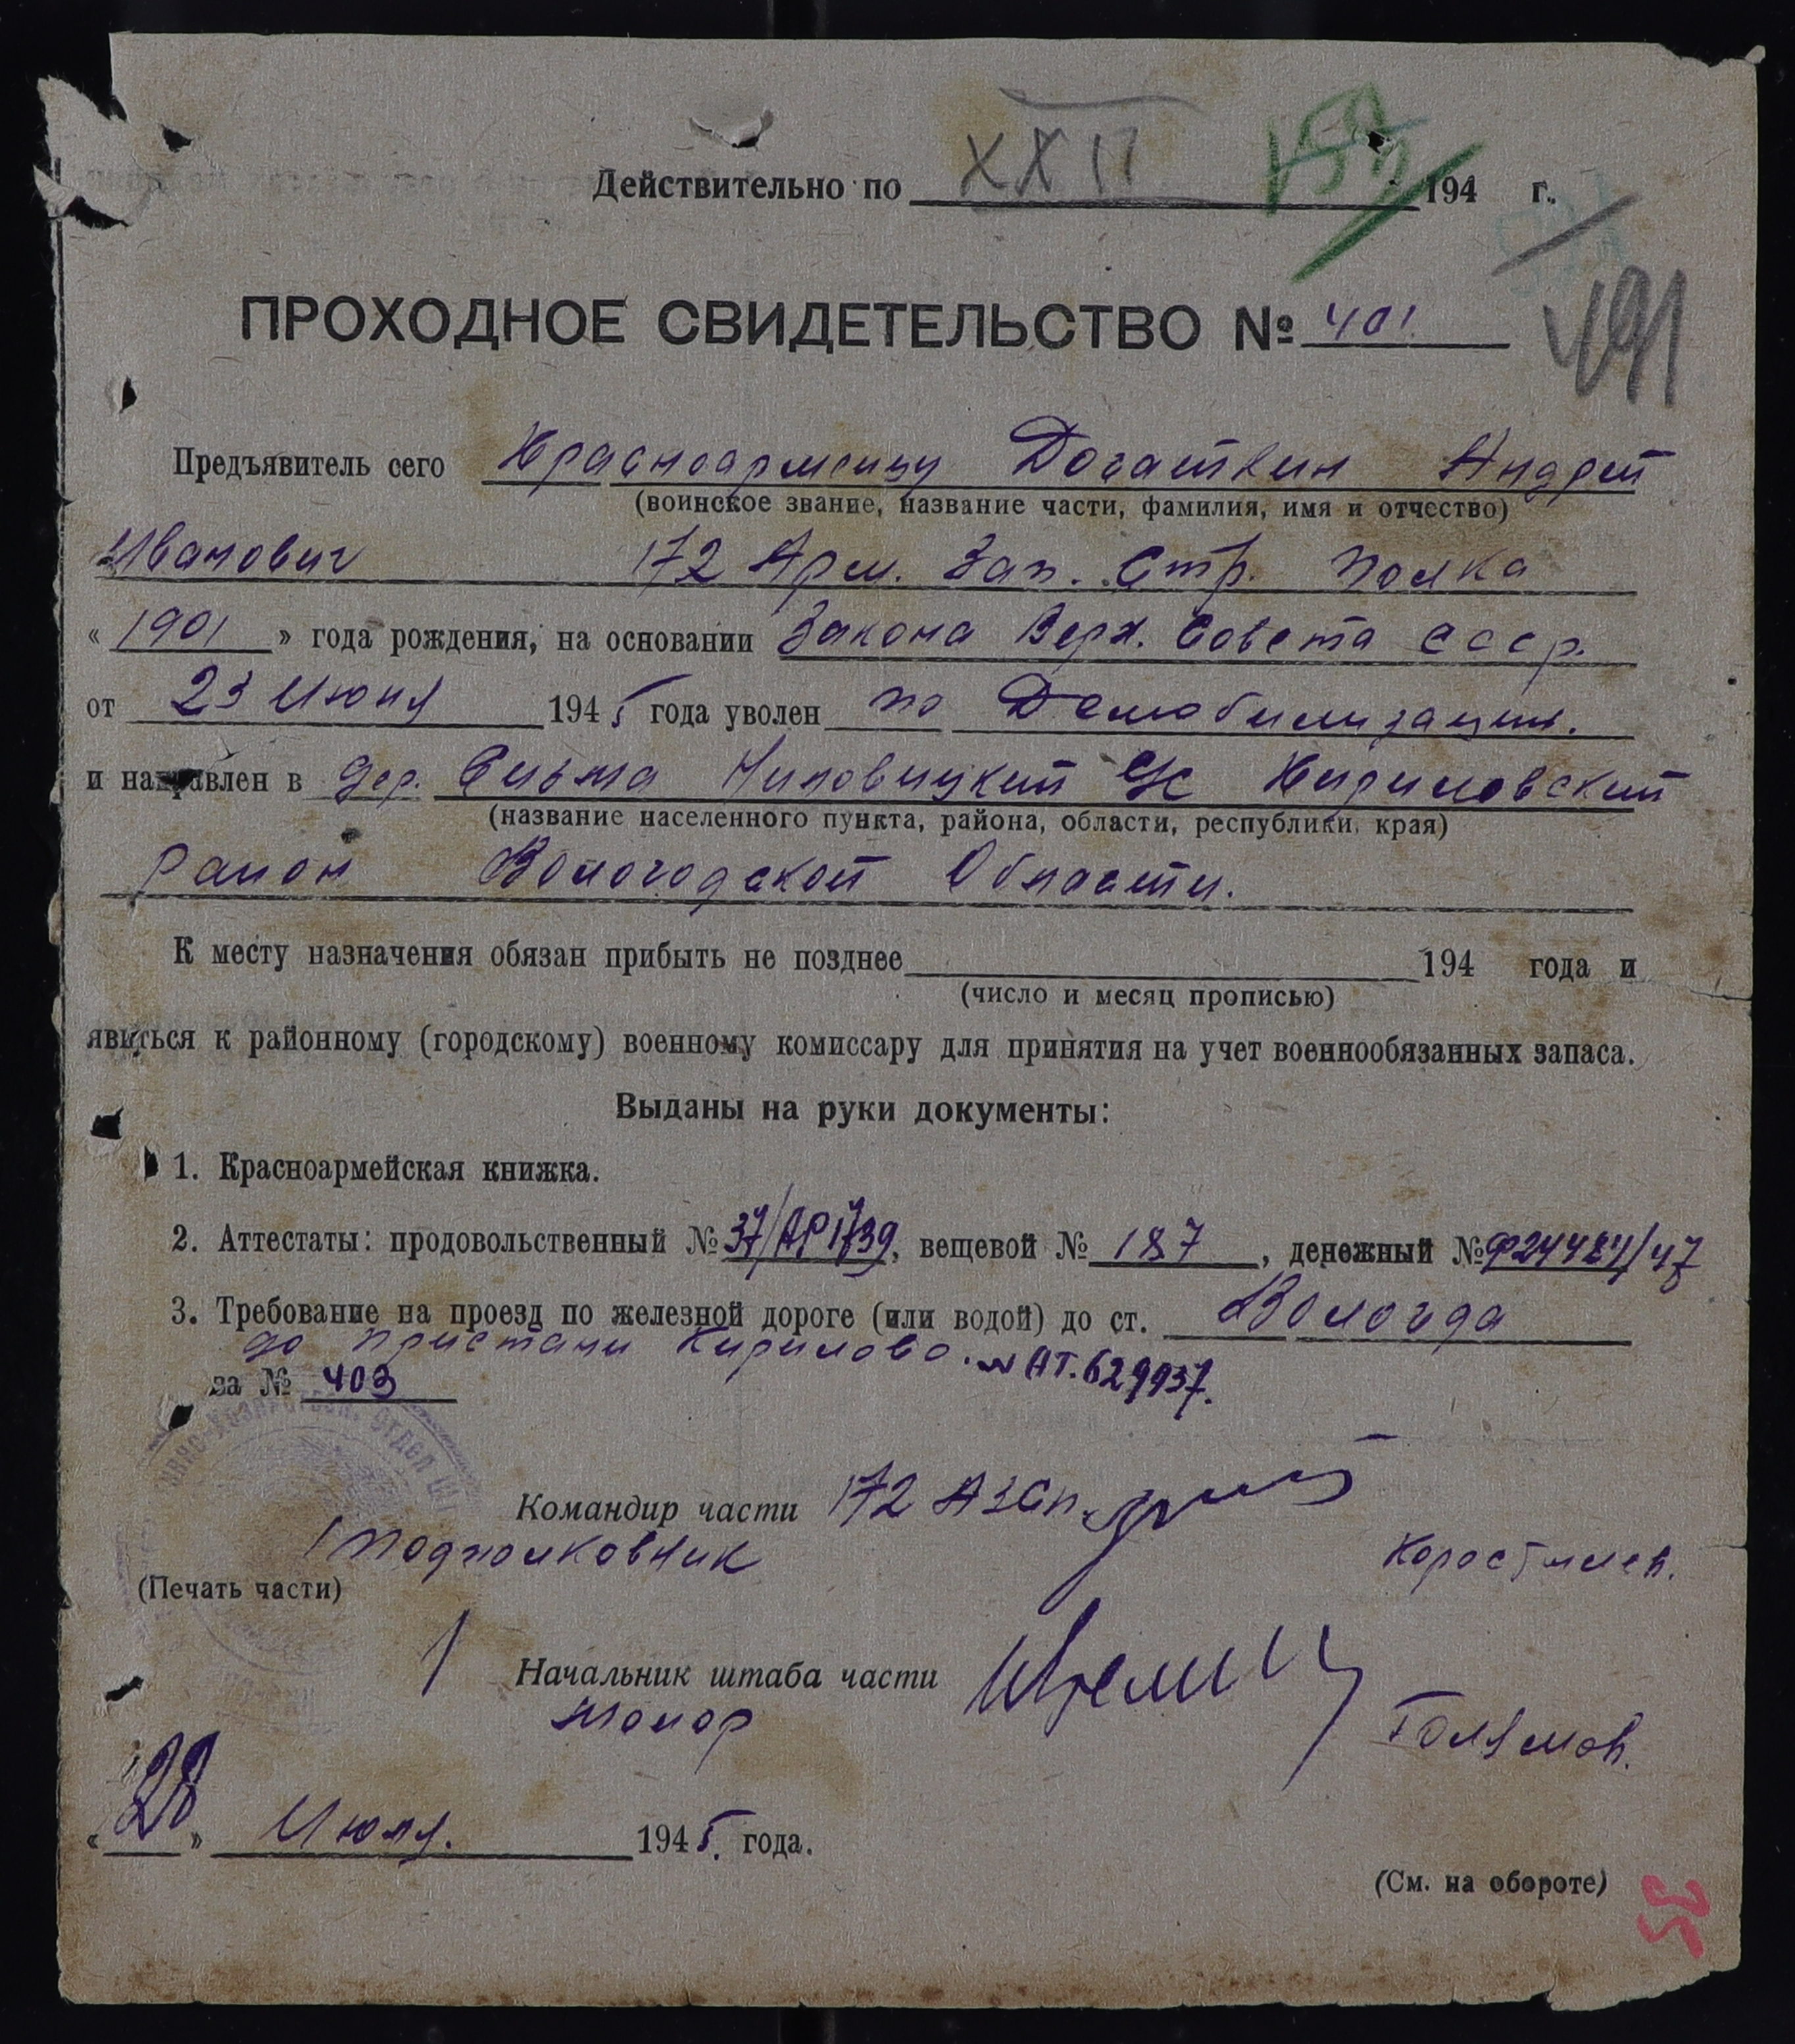 Действительно по XXII 194 г.
ПРОХОДНОЕ СВИДЕТЕЛЬСТВО № 401
491
Предъявитель сего Красноармейцу Догаткин Андрей
(воинское звание, название части, фамилия, имя и отчество)
Иванович 172 Арм. Зап. Стр. Полка
« 1901 » года рождения, на основании Закона Верх. Совета СССР.
от 23 Июня 1945 года уволен по Демобилизации.
и направлен в дер. Сизьма Ниловицкий с/с Кириловский
(название населенного пункта, района, области, республики, края)
район Вологодской Области.
К месту назначения обязан прибыть не позднее 194 года и
(число и месяц прописью)
явиться к районному (городскому) военному комиссару для принятия на учет военнообязанных запаса.
Выданы на руки документы:
1. Красноармейская книжка.
2. Аттестаты: продовольственный № 37/АР1739, вещевой № 187, денежный № Ф24484/47
3. Требование на проезд по железной дороге (или водой) до ст. Вологда
до пристани Кирилово. № АТ. 629937.
за № 403
Командир части 172 АЗСП.
Подполковник
(Печать части)
Начальник штаба части
Майор
«28» Июля. 1945. года.
(См. на обороте)